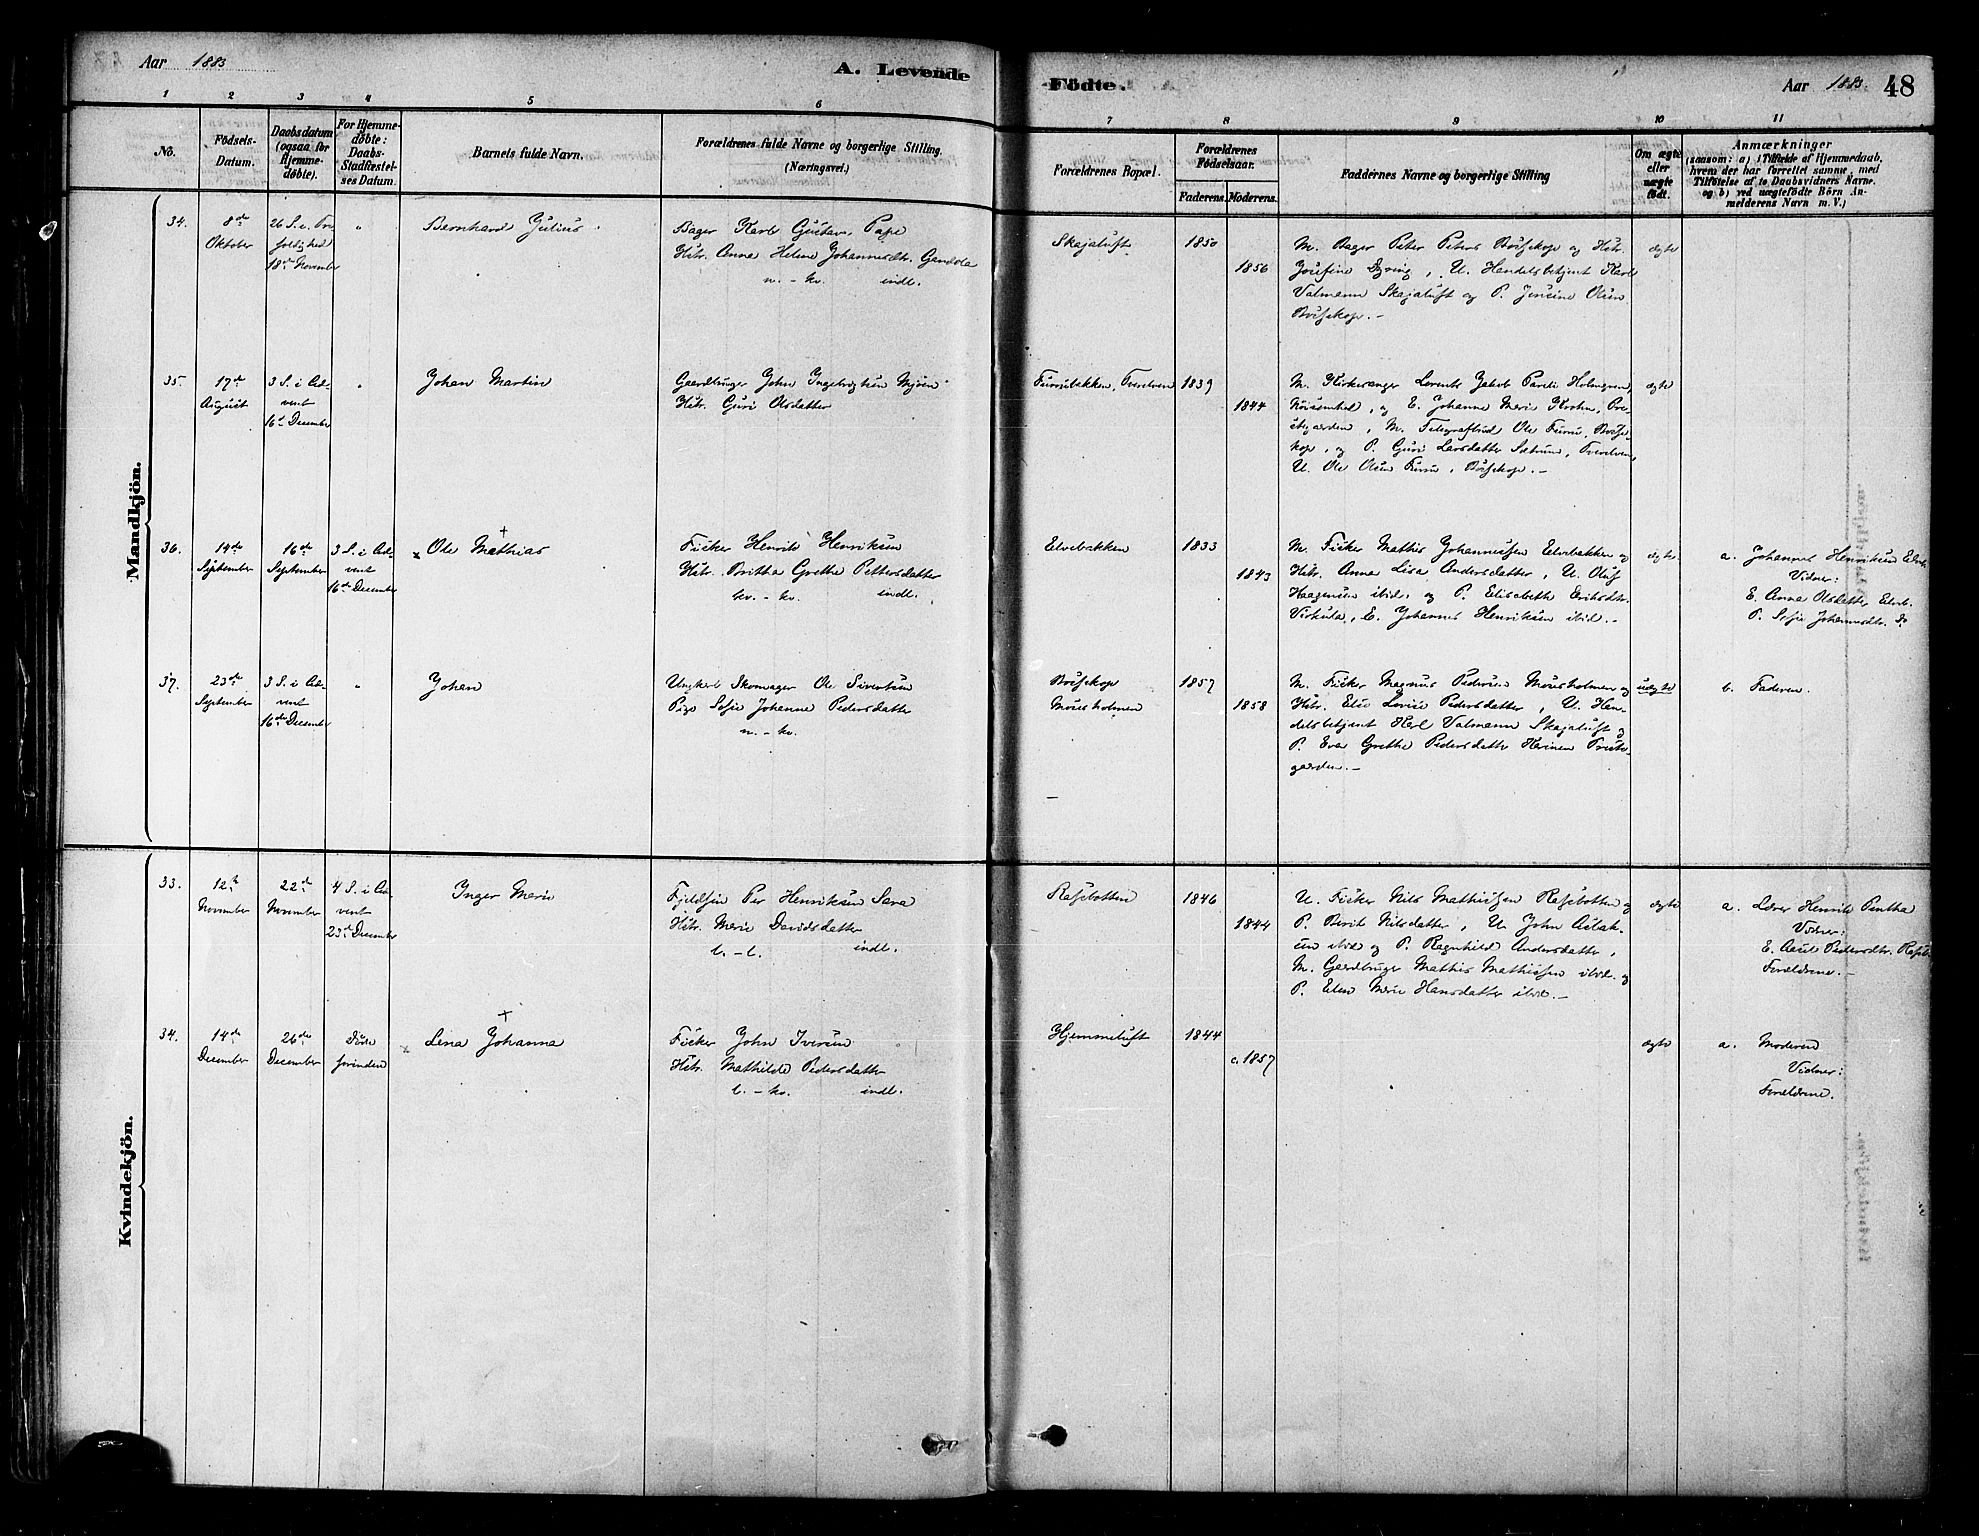 Aar 1883
A. Levende
Födte.
Aar 1883
48
1 2 3 4 5 6 7 8 9 10 11
No.
Födsels-
Datum.
Daabsdatum
(ogsaa for
Hjemme-
døbte).
For Hjemme-
døbte:
Daabs-
Stadfæstel-
ses Datum.
Barnets fulde Navn.
Forældrenes fulde Navne og borgerlige Stilling.
(Næringsvei.)
Forældrenes Bopæl.
Forældrenes
Födselsaar.
Faderens.
Moderens.
Faddernes Navne og borgerlige Stilling
Om ægte
eller
uægte
født.
Anmærkninger
(saasom: a) i Tilfælde af Hjemmedaab,
hvem der har forrettet samme, med
Tilföielse af to Daabsvidners Navne,
og b) ved uægtefödte Börn An-
melderens Navn m. V.)
Mandkjön.
34.
8de
Oktober
26 S. e. Tre
foldighed
18de November
"
Bernhard Julius
Bager Karl Gustav Pape
Hstr. Anna Helene Johannesdtr. Gandola
n. - kv. indl.
Skajaluft
1850
1856
M. Bager Peter Peters Bossekop og Hstr.
Josefine Dyring, U. Handelsbetjent Karl
Valmann Skajaluft og P. Jensine Olsen
Bossekop. -
ægte
35.
17de
August
3 S. i Ad-
vent
16de December
"
Johan Martin
Gaardbruger John Ingebrigtsen Mjøen
Hstr. Guri Olsdatter
Furubakken, Tverelven
1839
1844
M. Kirkesanger Lorents Jakob Parelii Holmgren,
og E. Johanne Marie Krohn, Pre-
stegaarden, M. Telegrafbud Ole Furu, Bosse-
kop, og P. Guri Larsdatter Sætrum, Tverelven,
U. Ole Olsen Furu, Bossekop. -
ægte
36.
14de
September
16de
September
3 S. i Ad-
vent
16de December
Ole Mathias
Fisker Henrik Henriksen
Hstr. Britha Grethe Pettersdatter
kv. - kv. indl.
Elvebakken
1833
1843
M. Fisker Mathis Johannessen Elvebakken og
Hstr. Anna Lisa Andersdatter, U. Oluf
Haagensen ibid. og P. Elisabeth Eriksdtr.
Virkula, E. Johannes Henriksen ibid. -
ægte
a. Johannes Henriksen Elveb.
Vidner:
E. Anna Olsdatter, Elveb.
P. Sofie Johannesdtr. do
37.
23de
September
3 S. i Ad-
vent
16de December
"
Johan
Ungkarl Skomager Ole Sivertsen
Pige Sofie Johanne Pedersdatter
n. - kv.
Bossekop
Mousholmen
1857
1858
M. Fisker Magnus Pedersen Mousholmen og
Hstr. Else Lovise Pedersdatter, U. Han-
delsbetjent Karl Valmann Skajaluft og
P. Eva Grethe Pedersdatter Heinen Preste-
gaarden. -
uægte
b. Faderen.
Kvindekjön.
33.
12te
November
22de
November
4 S. i Ad-
vent
23de December
Inger Marie
Fjeldfin Per Henriksen Sara
Hstr. Marie Davidsdatter
l. - l. indl.
Rafsbotten
1846
1844
U. Fisker Nils Mathissen Rafsbotten og
P. Berit Nilsdatter, U. John Aslak-
sen ibid og P. Ragnhild Andersdatter,
M. Gaardbruger Mathis Mathissen ibid. og
P. Elen Marie Hansdatter ibid. -
ægte
a. Lærer Henrik Pentha
Vidner:
E. Pedersdtr. Rafsb.
Forældrene. -
34.
14de
December
26de
December
Döde
forinden
Lena Johanna
Fisker John Iversen
Hstr. Mathilde Pedersdatter
l. - kv. indl.
Hjemmeluft
1844
c. 1857
ægte
a. Moderen
Vidner:
Forældrene.